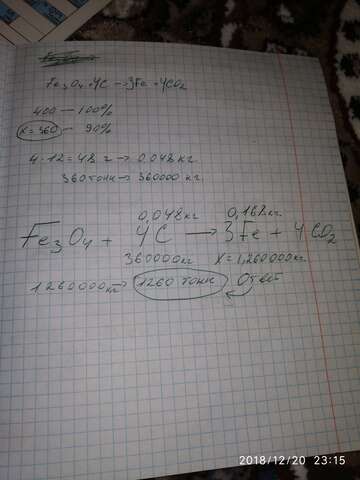 Fe3O4 + 4C → 3Fe + 4CO2
400 — 100%
x = 360 — 90%
4 · 12 = 48 г → 0.048 кг.
360 тонн → 360000 кг.
0,048 кг 0,168 кг.
Fe3O4 + 4C → 3Fe + 4CO2
360000 кг X = 1,260000 кг
1260000 кг → 1260 тонн Ответ
2018/12/20 23:15